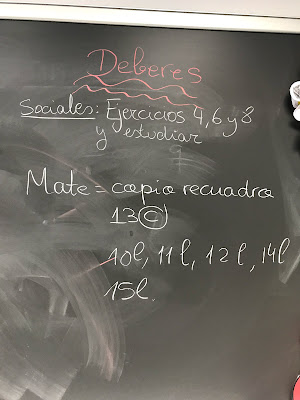 Deberes
Sociales: Ejercicios 4, 6 y 8
y estudiar
Mate = copia recuadro
13 C
10l, 11l, 12l, 14l
15l.